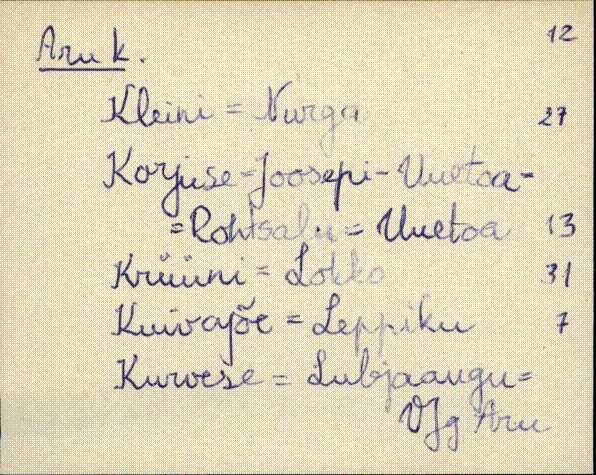 Aru k. 12
Kleini = Nurga 27
Korjuse-Joosepi-Uuetoa-
=Rohtsalu = Uuetoa 13
Krüüni = Lokko 31
Kuivajõe = Leppiku 7
Kurvese = Lubjaaugu=
VJg Aru